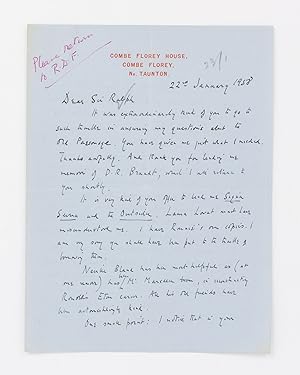 Please return
to R.D.F.
COMBE FLOREY HOUSE,
COMBE FLOREY,
Nr. TAUNTON.
22nd January 1958
Dear Sir Ralph
It was extraordinarily kind of you to go to
such trouble in answering my questions about the
Old Passage. You have given me just what I needed.
Thanks awfully. And thank you for lending me
memoir of D.R. Brandt, which I will return to
you shortly.
It is very kind of you offer to lend me
and the Outsider. Laura Lovat must have
misunderstood me. I have Ronnie's own copies. I
am very sorry you should have been put to the trouble of
me.
has been most helpful as (at
one remove) has Mr. Marsden too, in
Ronald's Eton career. All his old friends have
been astonishingly kind.
One small point: I notice that in your